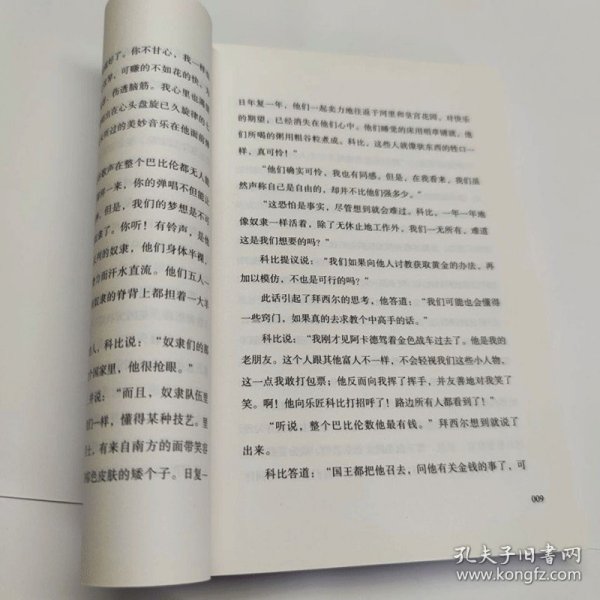 了。你不甘心，我一样
可赚的不如花的快。
伤透脑筋。我心里也
在心头盘旋已久旋律的
所过的美妙音乐在他面前
歌声在整个巴比伦都无人
一来，你的弹唱不但能
但是，我们的梦想是不可
了。你听！有铃声，是
列的奴隶，他们身体半裸，
力而汗水直流。他们五人一
奴隶的脊背上都担着一大羊
人，科比说：“奴隶们的
个国家里，他很抢眼。”
并说：“而且，奴隶队伍里
们一样，懂得某种技艺。里
士，有来自南方的面带笑容
棕色皮肤的矮个子。日复一
日年复一年，他们一起卖力地往返于河里和皇宫花园，对快乐
的期望，已经消失在他们心中。他们睡觉的床用稻草铺就，他
们所喝的粥用粗谷粒煮成。科比，这些人就像驮东西的牲口一
样，真可怜！”
“他们确实可怜，我也有同感。但是，在我看来，我们虽
然声称自己是自由的，却并不比他们强多少。”
“这恐怕是事实，尽管想到就会难过。科比，一年一年地
像奴隶一样活着，除了无休止地工作外，我们一无所有。难道
这是我们想要的吗？”
科比提议说：“我们如果向他人讨教获取黄金的办法，再
加以模仿，不也是可行的吗？”
此话引起了拜西尔的思考，他答道：“我们可能也会懂得
一些窍门，如果真的去求教个中高手的话。”
科比说：“我刚才见阿卡德驾着金色战车过去了。他是我的
老朋友。这个人跟其他富人不一样，不会轻视我们这些小人物，
这一点我敢打包票；他反而向我挥了挥手，并友善地对我笑了
笑。啊！他向乐匠科比打招呼了！路边所有人都看到了！”
“听说，整个巴比伦数他最有钱。”拜西尔想到就说了
出来。
科比答道：“国王都把他召去，问他有关金钱的事了，可
009
孔夫子旧书网
www.kongfz.com